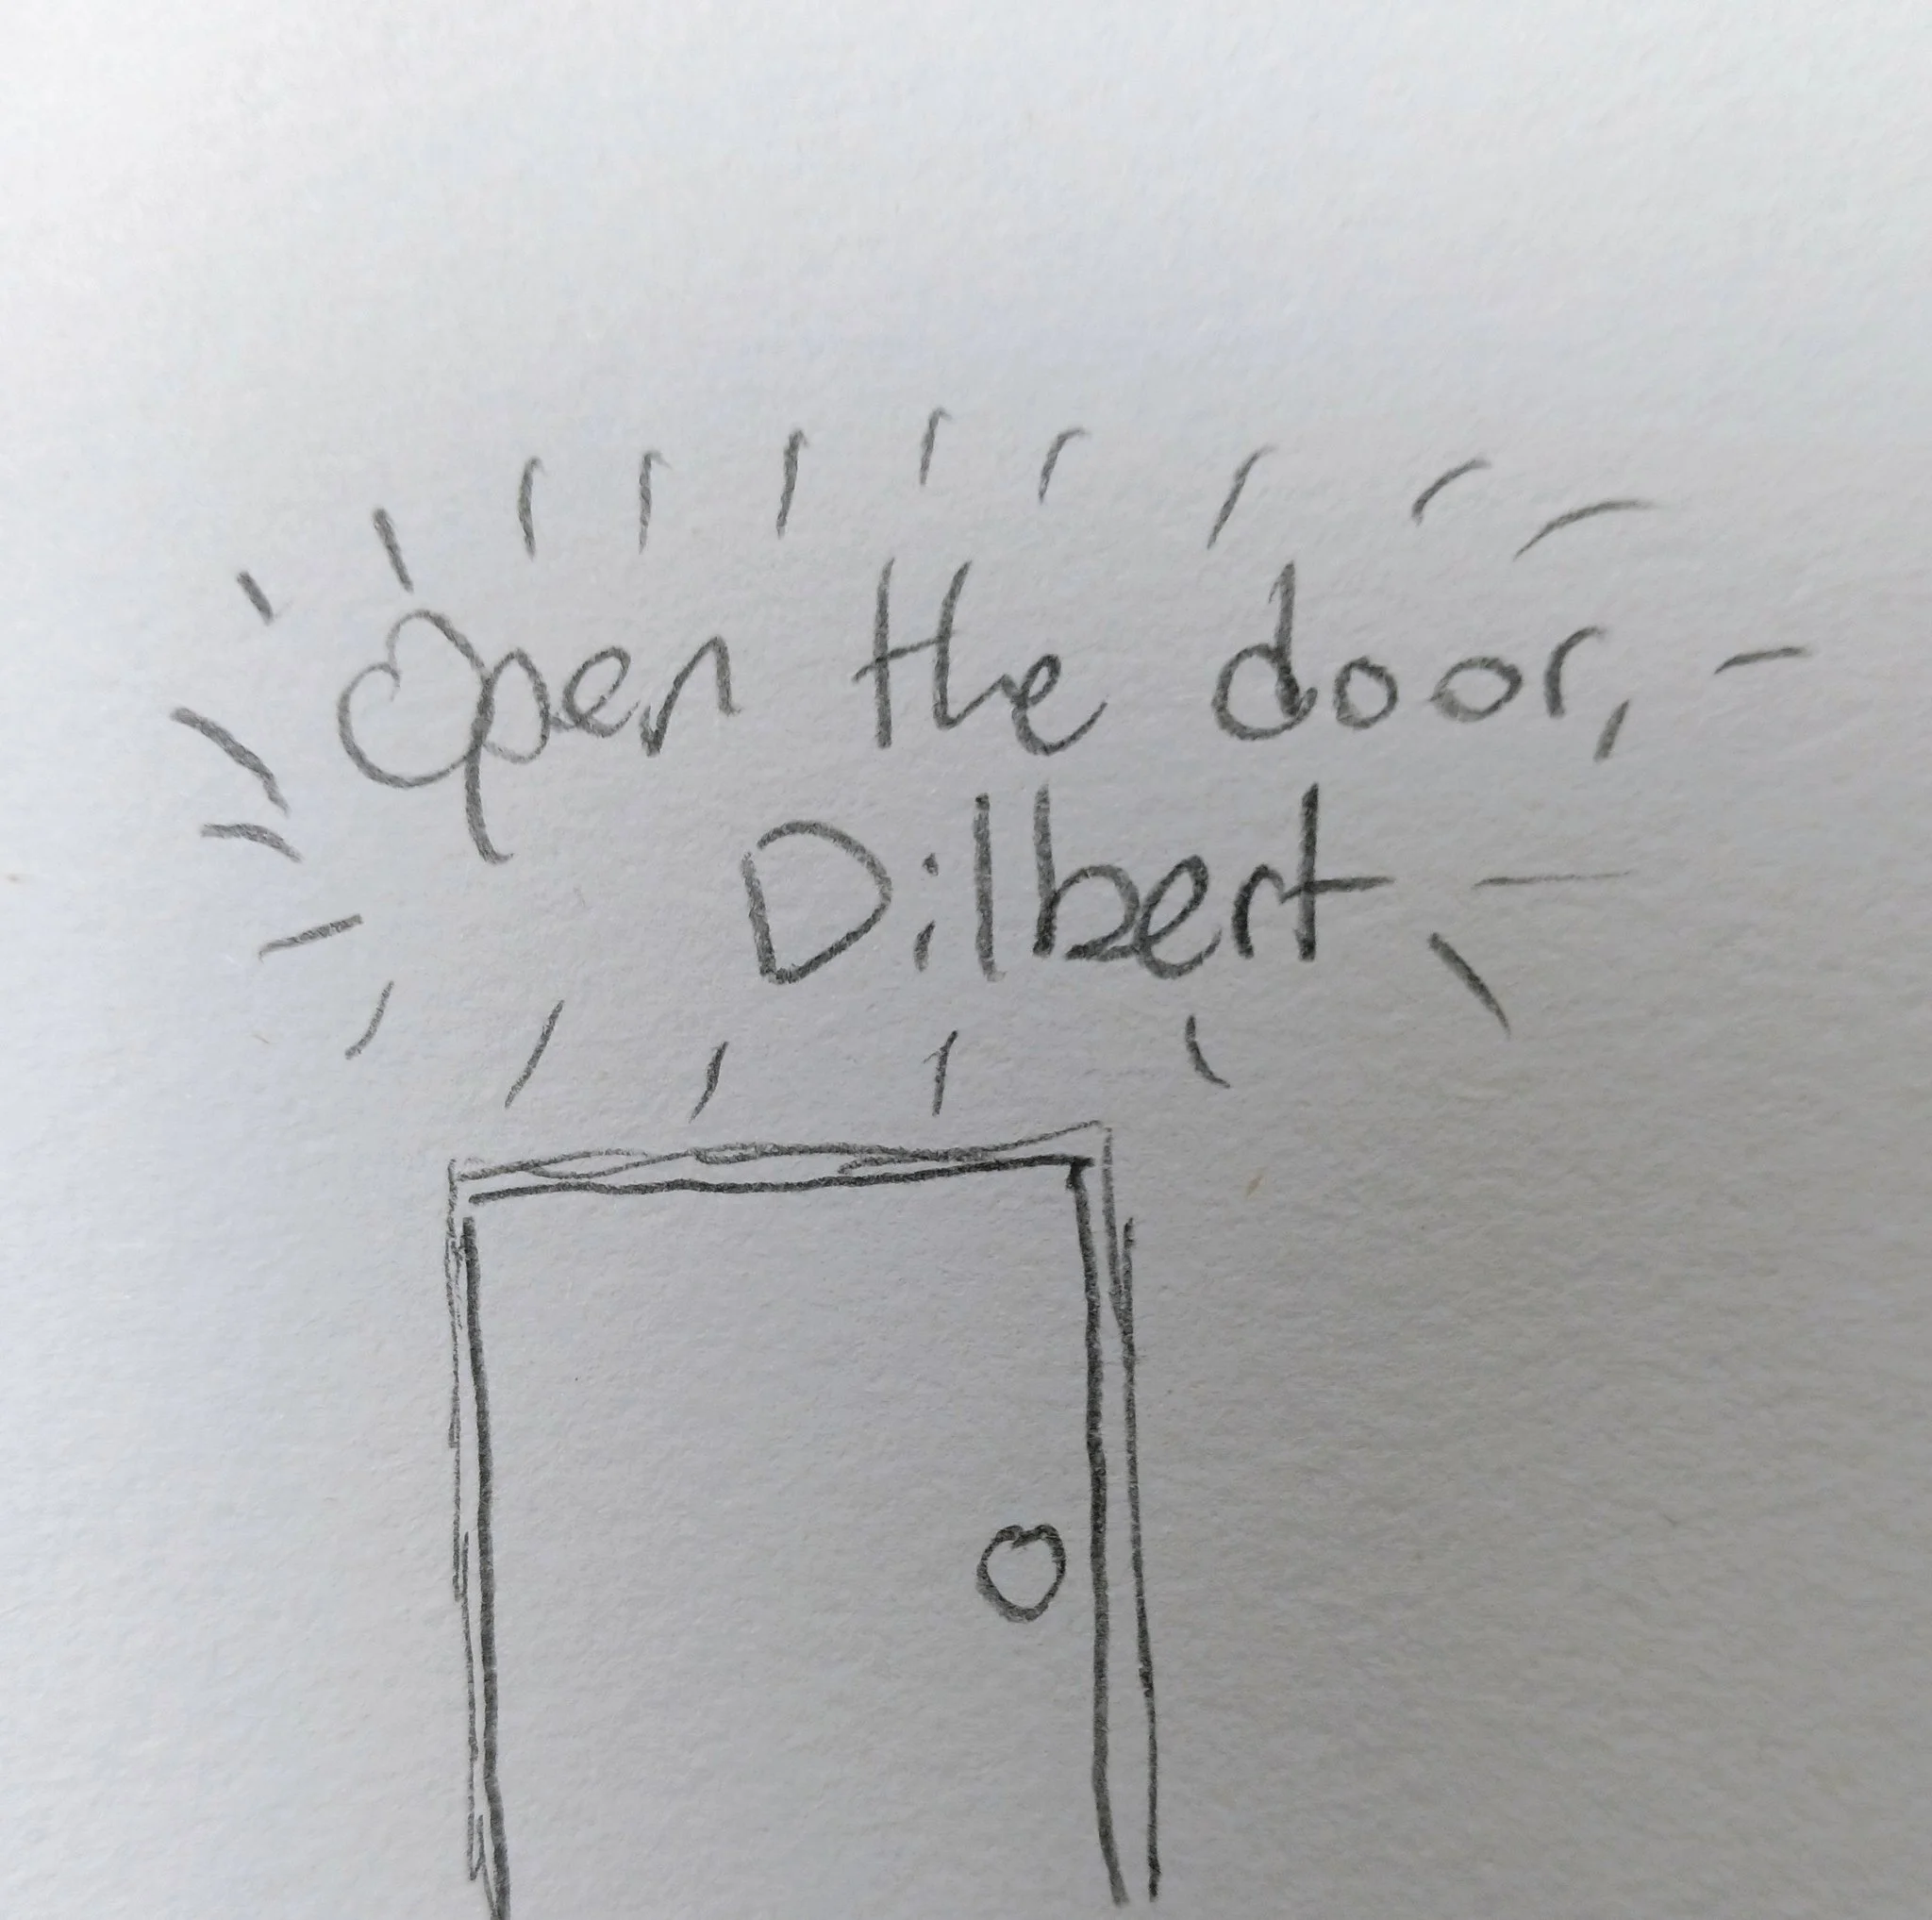 Open the door,
Dilbert